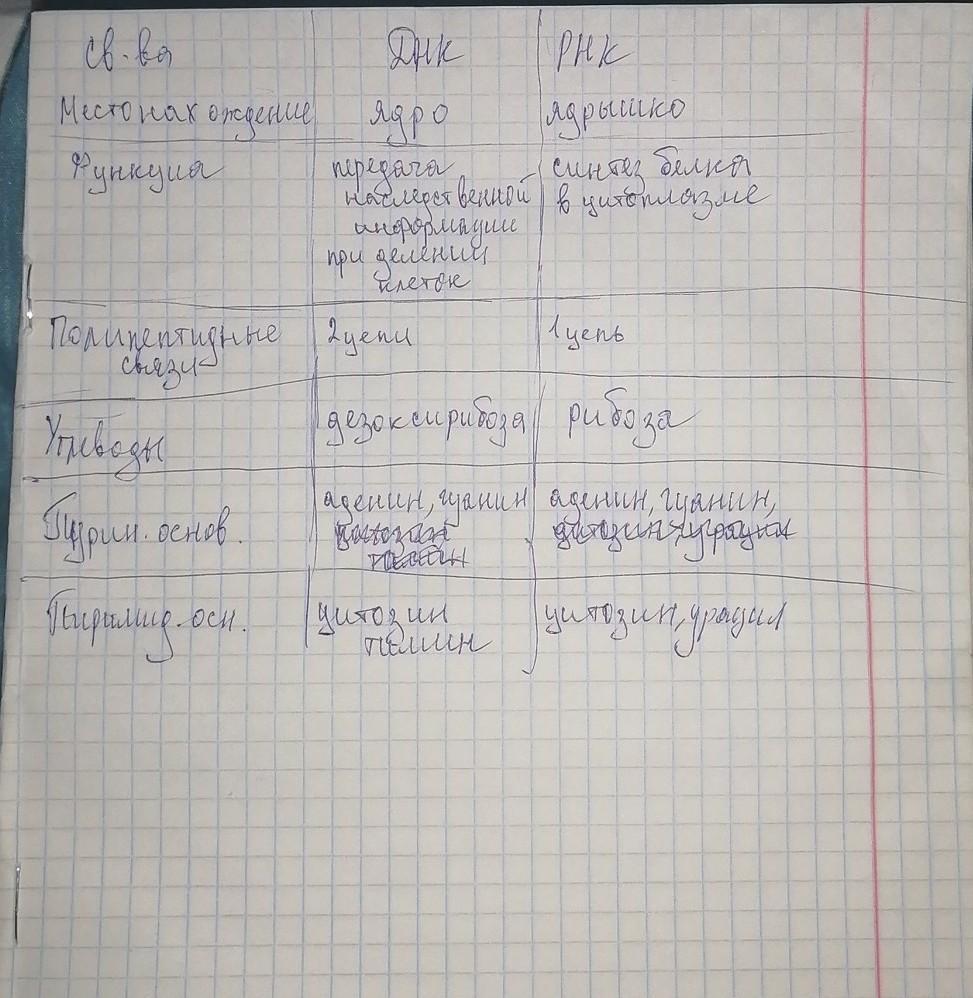 Св-ва ДНК РНК
Местонахождение ядро ядрышко
Функция передача синтез белка
наследственной в цитоплазме
информации
при делении
клеток
Полипептидные 2 цепи 1 цепь
связи
Углеводы дезоксирибоза рибоза
Пурин. основ. аденин, гуанин аденин, гуанин,
Пиримид. осн. цитозин цитозин, урацил
тимин